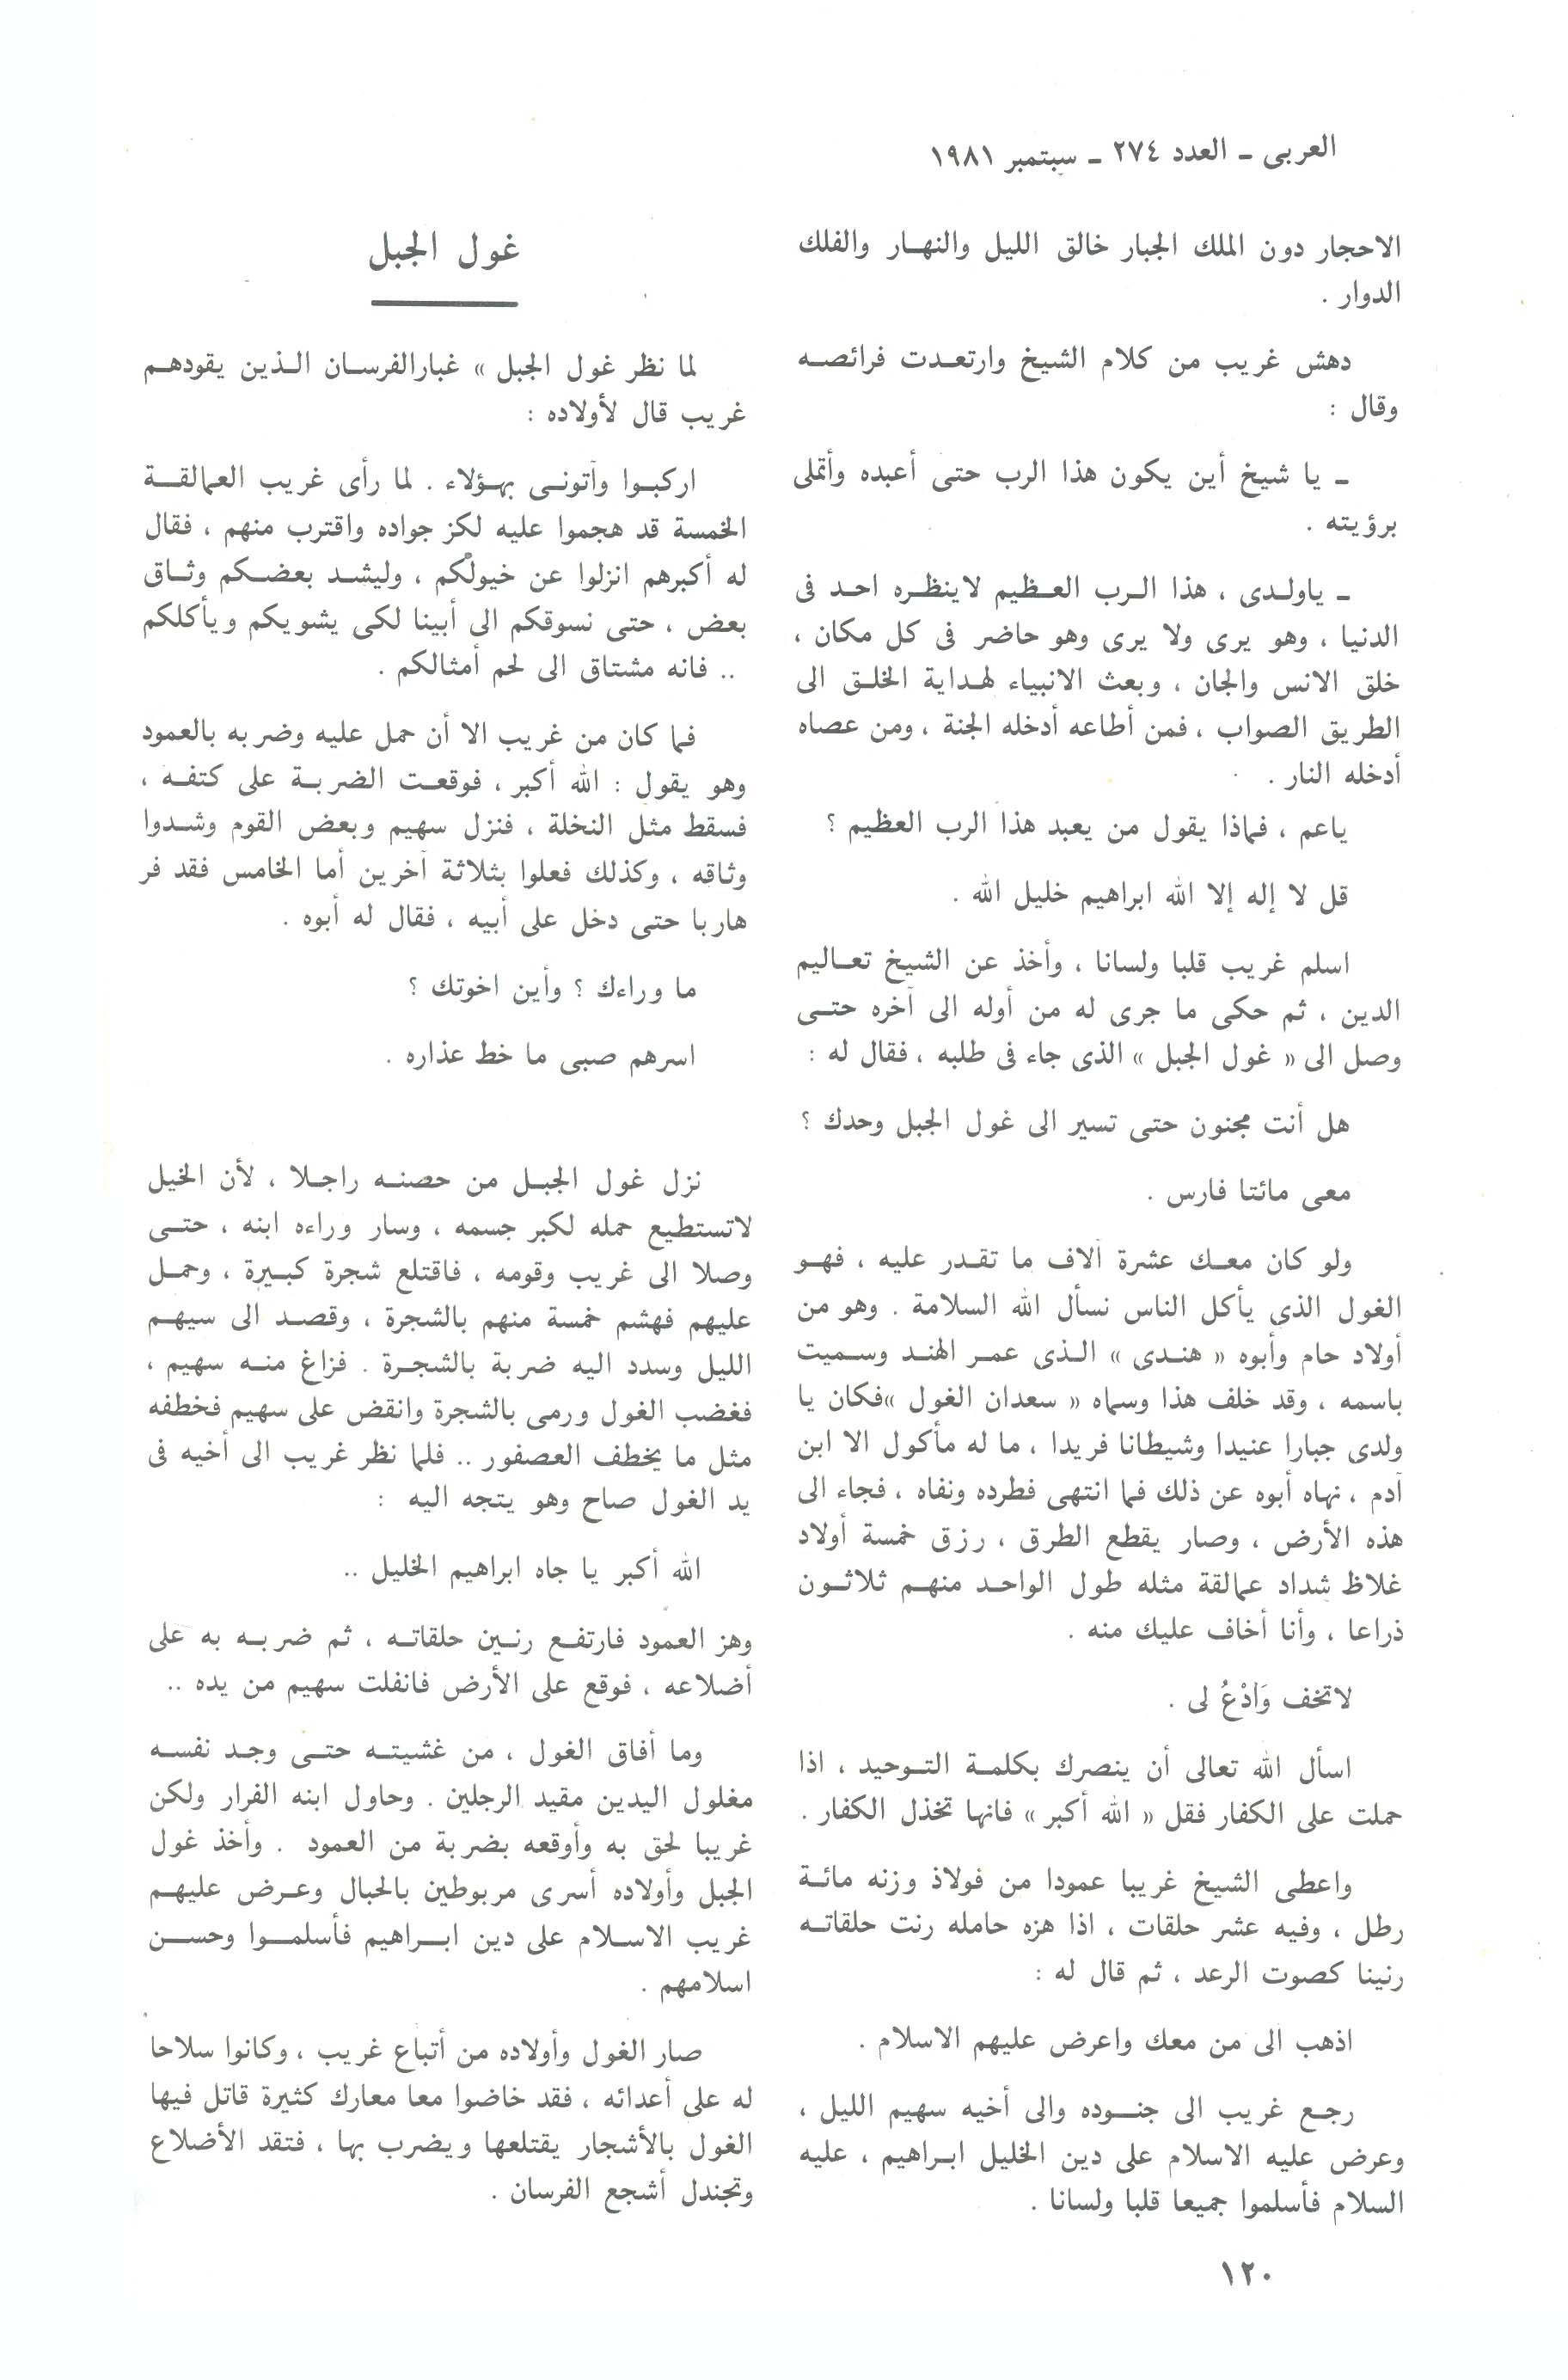 العربى ـ العدد ٢٧٤ ـ سبتمبر ١٩٨١
الاحجار دون الملك الجبار خالق الليل والنهار والفلك
الدوار .
دهش غريب من كلام الشيخ وارتعدت فرائصه
وقال :
ـ يا شيخ أين يكون هذا الرب حتى أعبده وأتملى
برؤيته .
ـ ياولدى ، هذا الرب العظيم لاينظره احد فى
الدنيا ، وهو يرى ولا يرى وهو حاضر فى كل مكان ،
خلق الانس والجان ، وبعث الانبياء لهداية الخلق الى
الطريق الصواب ، فمن أطاعه أدخله الجنة ، ومن عصاه
أدخله النار .
ياعم ، فماذا يقول من يعبد هذا الرب العظيم ؟
قل لا إله إلا الله ابراهيم خليل الله .
اسلم غريب قلبا ولسانا ، وأخذ عن الشيخ تعاليم
الدين ، ثم حكى ما جرى له من أوله الى آخره حتى
وصل الى « غول الجبل » الذى جاء فى طلبه ، فقال له :
هل أنت مجنون حتى تسير الى غول الجبل وحدك ؟
معى مائتا فارس .
ولو كان معك عشرة آلاف ما تقدر عليه ، فهو
الغول الذى يأكل الناس نسأل الله السلامة . وهو من
أولاد حام وأبوه « هندى » الذى عمر الهند وسميت
باسمه ، وقد خلف هذا وسماه « سعدان الغول »فكان يا
ولدى جبارا عنيدا وشيطانا فريدا ، ما له مأكول الا ابن
آدم ، نهاه أبوه عن ذلك فما انتهى فطرده ونفاه ، فجاء الى
هذه الأرض ، وصار يقطع الطرق ، رزق خمسة أولاد
غلاظ شداد عمالقة مثله طول الواحد منهم ثلاثون
ذراعا ، وأنا أخاف عليك منه .
لاتخف وَادْعُ لى .
اسأل الله تعالى أن ينصرك بكلمة التوحيد ، اذا
حملت على الكفار فقل « الله أكبر » فانها تخذل الكفار .
واعطى الشيخ غريبا عمودا من فولاذ وزنه مائة
رطل ، وفيه عشر حلقات ، اذا هزه حامله رنت حلقاته
رنينا كصوت الرعد ، ثم قال له :
اذهب الى من معك واعرض عليهم الاسلام .
رجع غريب الى جنوده والى أخيه سهيم الليل ،
وعرض عليه الاسلام على دين الخليل ابراهيم ، عليه
السلام فأسلموا جميعا قلبا ولسانا .
غول الجبل
لما نظر غول الجبل » غبارالفرسان الذين يقودهم
غريب قال لأولاده :
اركبوا وآتونى بهؤلاء . لما رأى غريب العمالقة
الخمسة قد هجموا عليه لكز جواده واقترب منهم ، فقال
له أكبرهم انزلوا عن خيولكم ، وليشد بعضكم وثاق
بعض ، حتى نسوقكم الى أبينا لكى يشويكم ويأكلكم
.. فانه مشتاق الى لحم أمثالكم .
فما كان من غريب الا أن حمل عليه وضربه بالعمود
وهو يقول : الله أكبر ، فوقعت الضربة على كتفه ،
فسقط مثل النخلة ، فنزل سهيم وبعض القوم وشدوا
وثاقه ، وكذلك فعلوا بثلاثة آخرين أما الخامس فقد فر
هاربا حتى دخل على أبيه ، فقال له أبوه .
ما وراءك ؟ وأين اخوتك ؟
اسرهم صبى ما خط عذاره .
نزل غول الجبل من حصنه راجلا ، لأن الخيل
لاتستطيع حمله لكبر جسمه ، وسار وراءه ابنه ، حتى
وصلا الى غريب وقومه ، فاقتلع شجرة كبيرة ، وحمل
عليهم فهشم خمسة منهم بالشجرة ، وقصد الى سيهم
الليل وسدد اليه ضربة بالشجرة . فزاغ منه سهيم ،
فغضب الغول ورمى بالشجرة وانقض على سهيم فخطفه
مثل ما يخطف العصفور .. فلما نظر غريب الى أخيه فى
يد الغول صاح وهو يتجه اليه :
الله أكبر يا جاه ابراهيم الخليل ..
وهز العمود فارتفع رنين حلقاته ، ثم ضربه به على
أضلاعه ، فوقع على الأرض فانفلت سهيم من يده ..
وما أفاق الغول ، من غشيته حتى وجد نفسه
مغلول اليدين مقيد الرجلين . وحاول ابنه الفرار ولكن
غريبا لحق به وأوقعه بضربة من العمود . وأخذ غول
الجبل وأولاده أسرى مربوطين بالحبال وعرض عليهم
غريب الاسلام على دين ابراهيم فأسلموا وحسن
اسلامهم .
صار الغول وأولاده من أتباع غريب ، وكانوا سلاحا
له على أعدائه ، فقد خاضوا معا معارك كثيرة قاتل فيها
الغول بالأشجار يقتلعها ويضرب بها ، فتقد الأضلاع
وتجندل أشجع الفرسان .
١٢٠